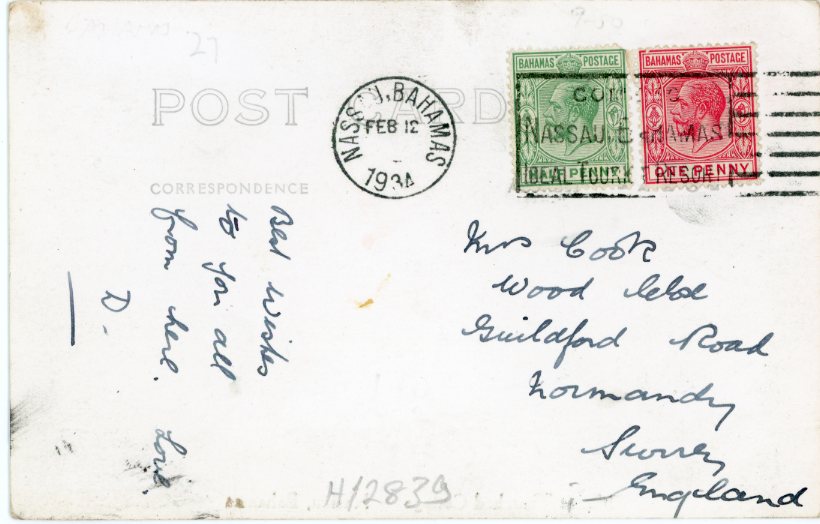 27
POST CARD
CORRESPONDENCE
NASSAU, BAHAMAS
FEB 12
1934
BAHAMAS POSTAGE
HALF PENNY
BAHAMAS POSTAGE
ONE PENNY
NASSAU BAHAMAS
IDEAL TOURIST RESORT
Best Wishes
to you all
from here. Love.
D.
Mrs Cook
Wood
Guildford Road
Normandy
Surrey
England
H12839